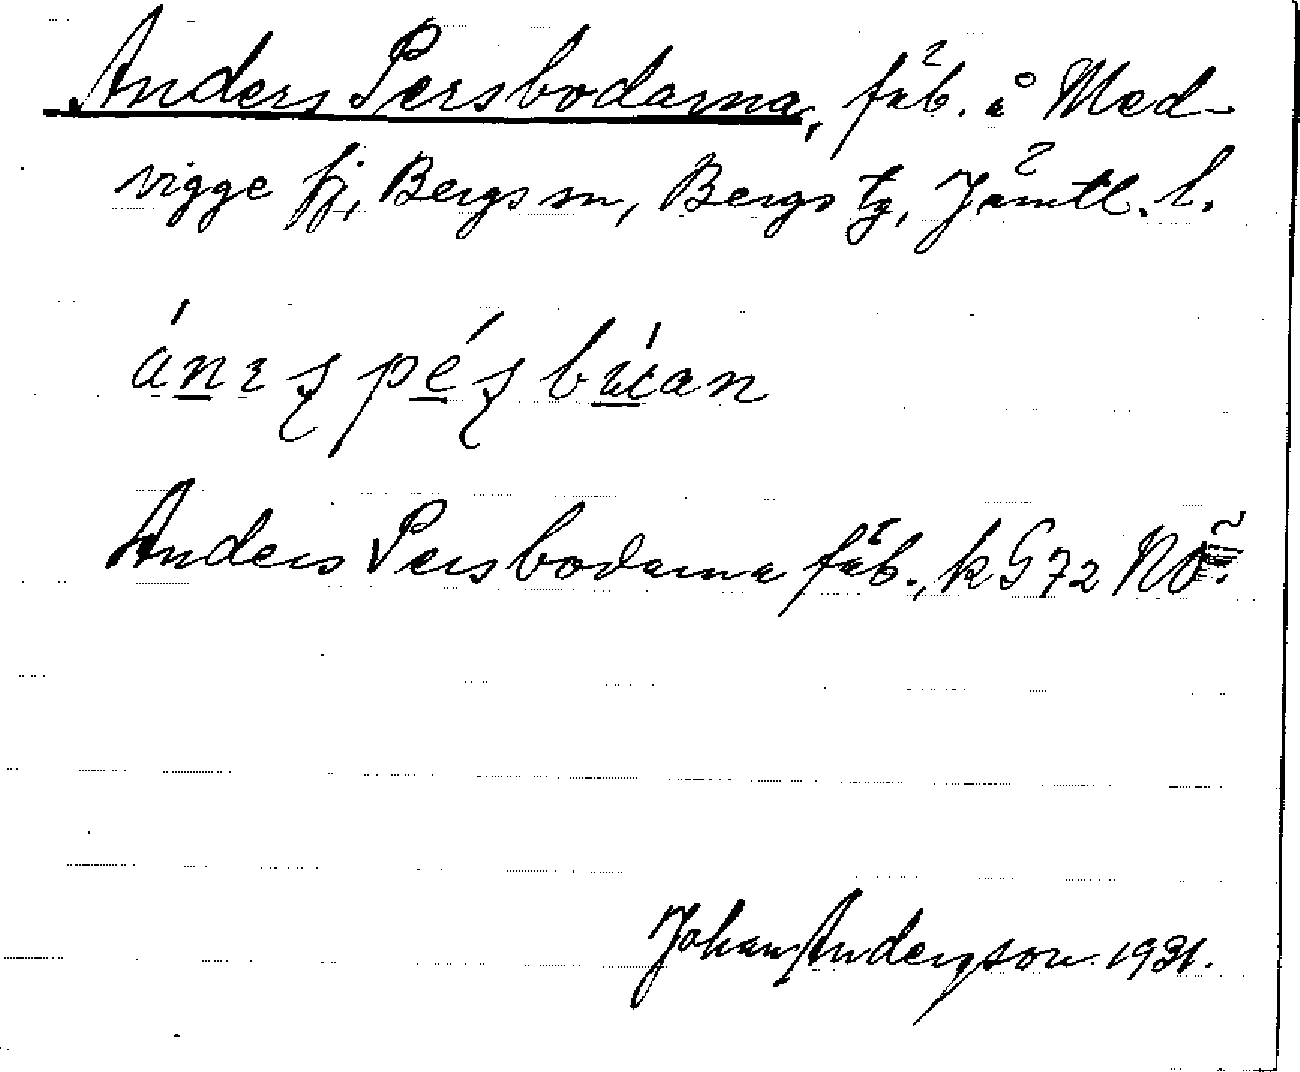 Anders Persbodarna, fäb. å Med-
vigge fj, Bergs sn, Bergs tg, Jämtl. l.
Anders Persbodarna fäb., k G 72 NÖ.
Johan Anderson 1931.